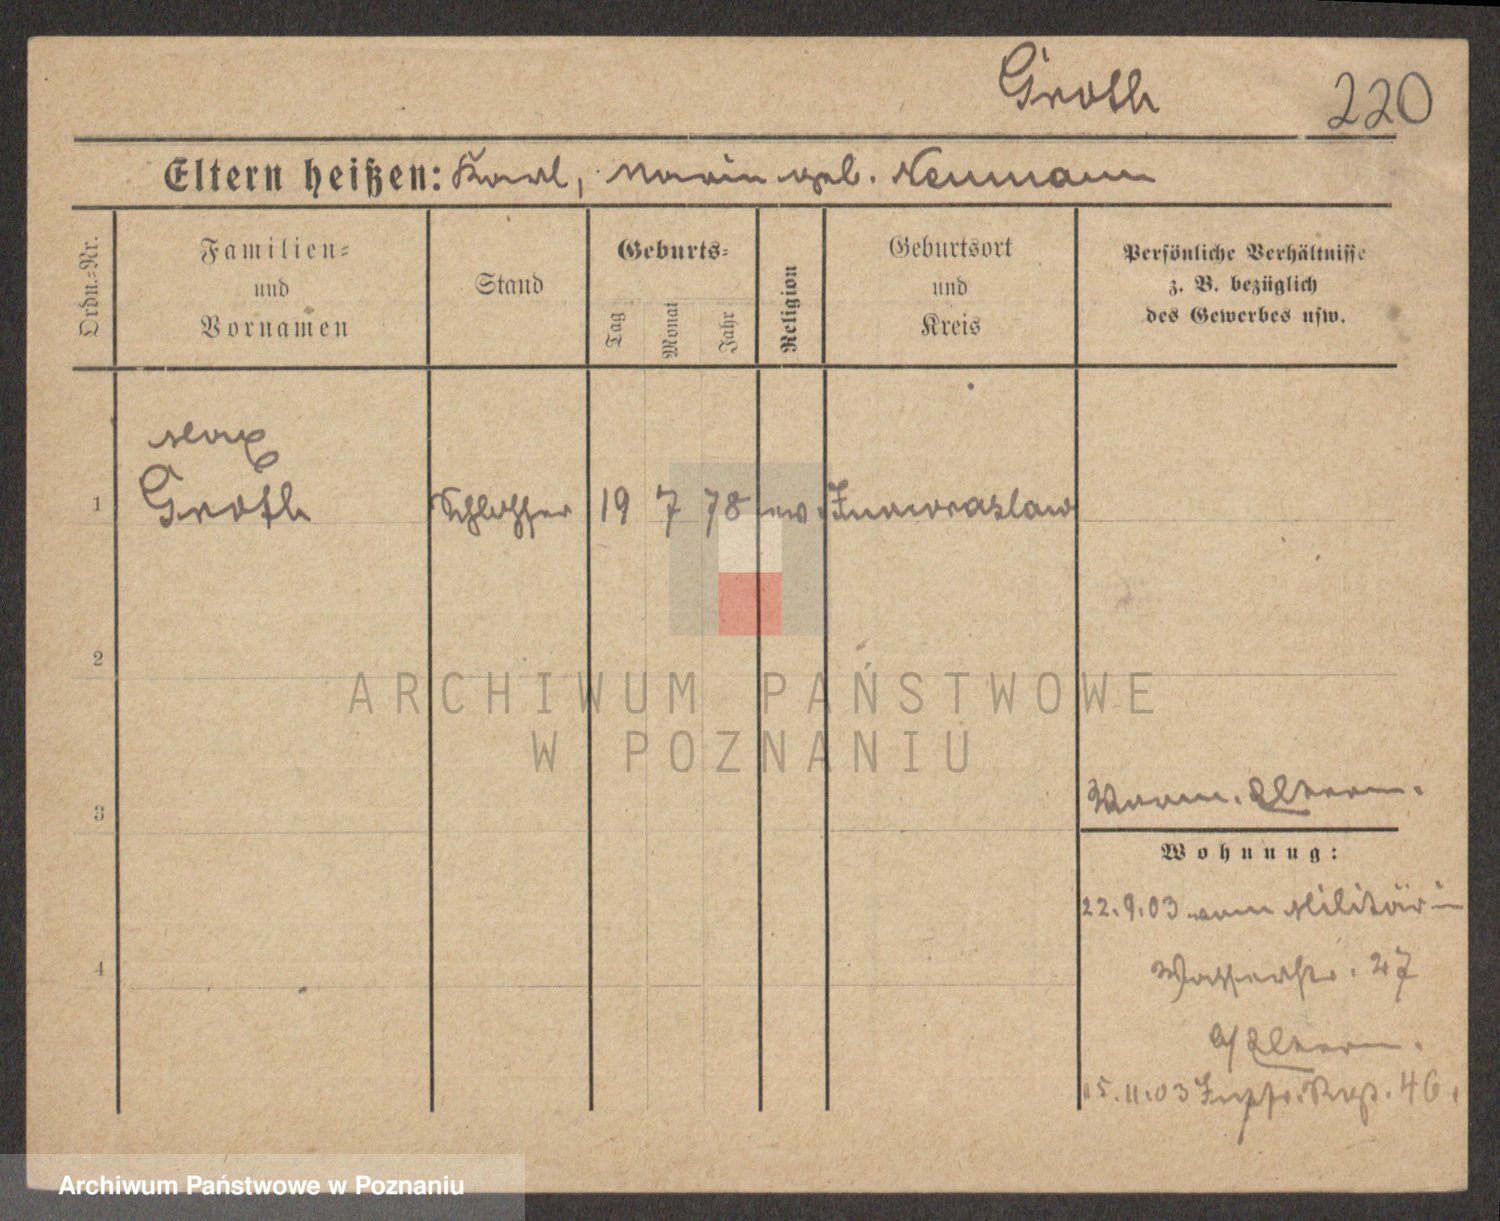 Groth
220
Eltern heißen: Karl, Marie geb. Neumann
Ordn.-Nr.
Familien-
und
Vornamen
Stand
Geburts-
Tag
Monat
Jahr
Religion
Geburtsort
und
Kreis
Persönliche Verhältnisse
z. B. bezüglich
des Gewerbes usw.
Max
1 Groth Schlosser 19 7 78 ev. Inowrazlaw
2
ARCHIWUM PAŃSTWOWE
W POZNANIU
3
Eltern.
Wohnung:
22.9.03 vom Militär
Wasserstr. 27
b/ Eltern.
15.11.03 46.
4
Archiwum Państwowe w Poznaniu